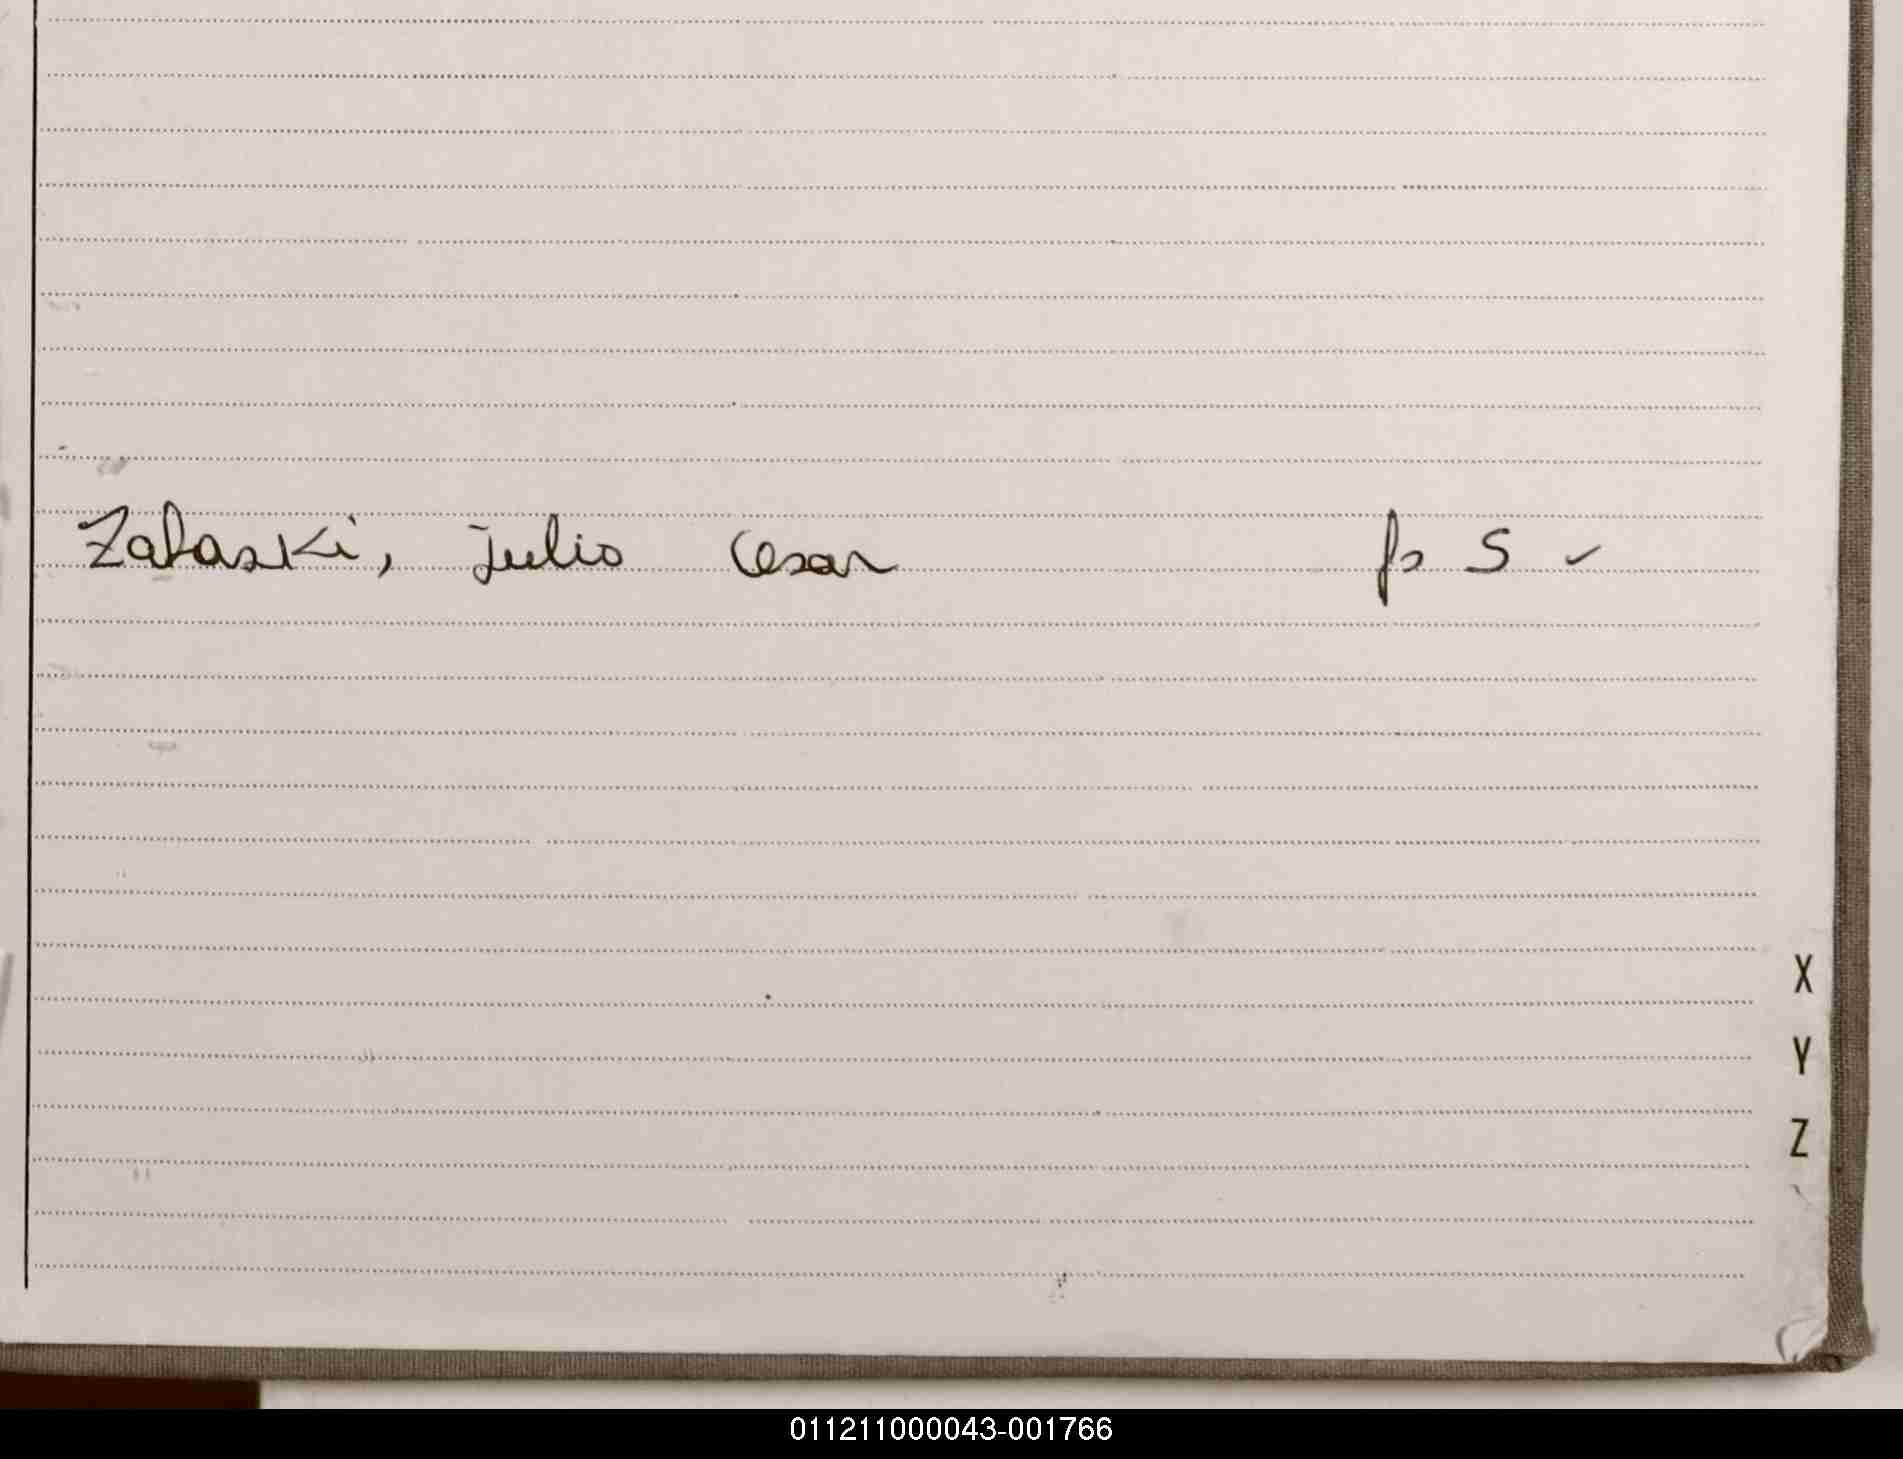 Zalaski, Julio Cesar fs 5 ✓
X
Y
Z
011211000043-001766